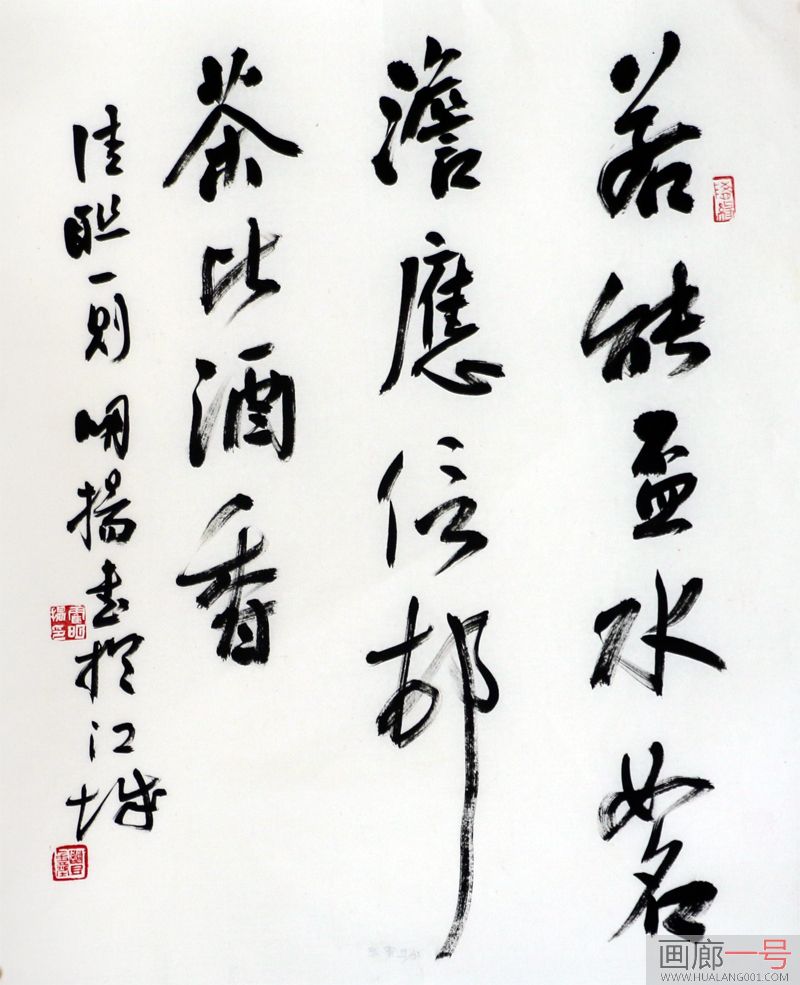 若能盃水如名
澹應信邨
茶比酒香
佳聯一則 明揚書於江城
画廊一号
WWW.HUALANG001.COM